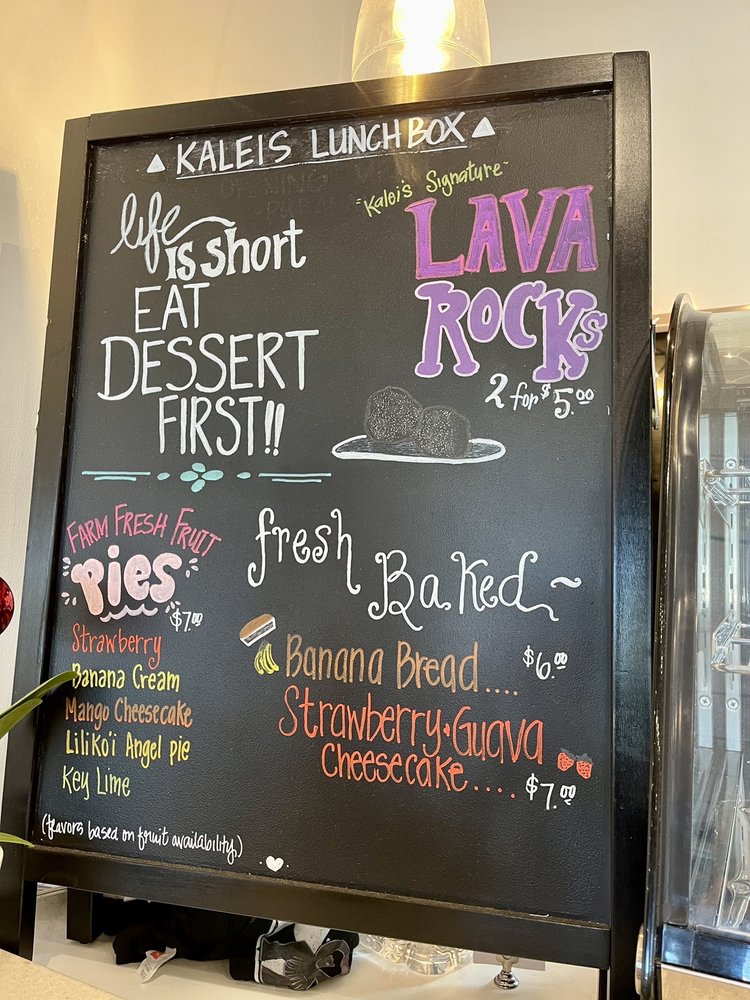 KALEIS LUNCHBOX
life
is short
EAT
DESSERT
FIRST!!
~Kalei's Signature~
LAVA
ROCKS
2 for $5.00
FARM FRESH FRUIT
Pies
$7.00
Strawberry
Banana Cream
Mango Cheesecake
Liliko'i Angel pie
Key Lime
(flavors based on fruit availability)
fresh
Baked~
Banana Bread.... $6.00
Strawberry•Guava
Cheesecake..... $7.00